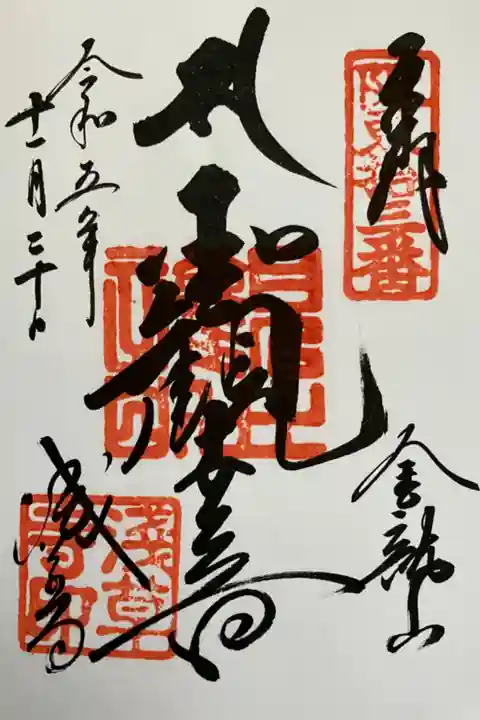 奉拝
阪東拾三番
金龍山
聖観世音
令和五年
十一月二十日
浅草寺
淺草寺印